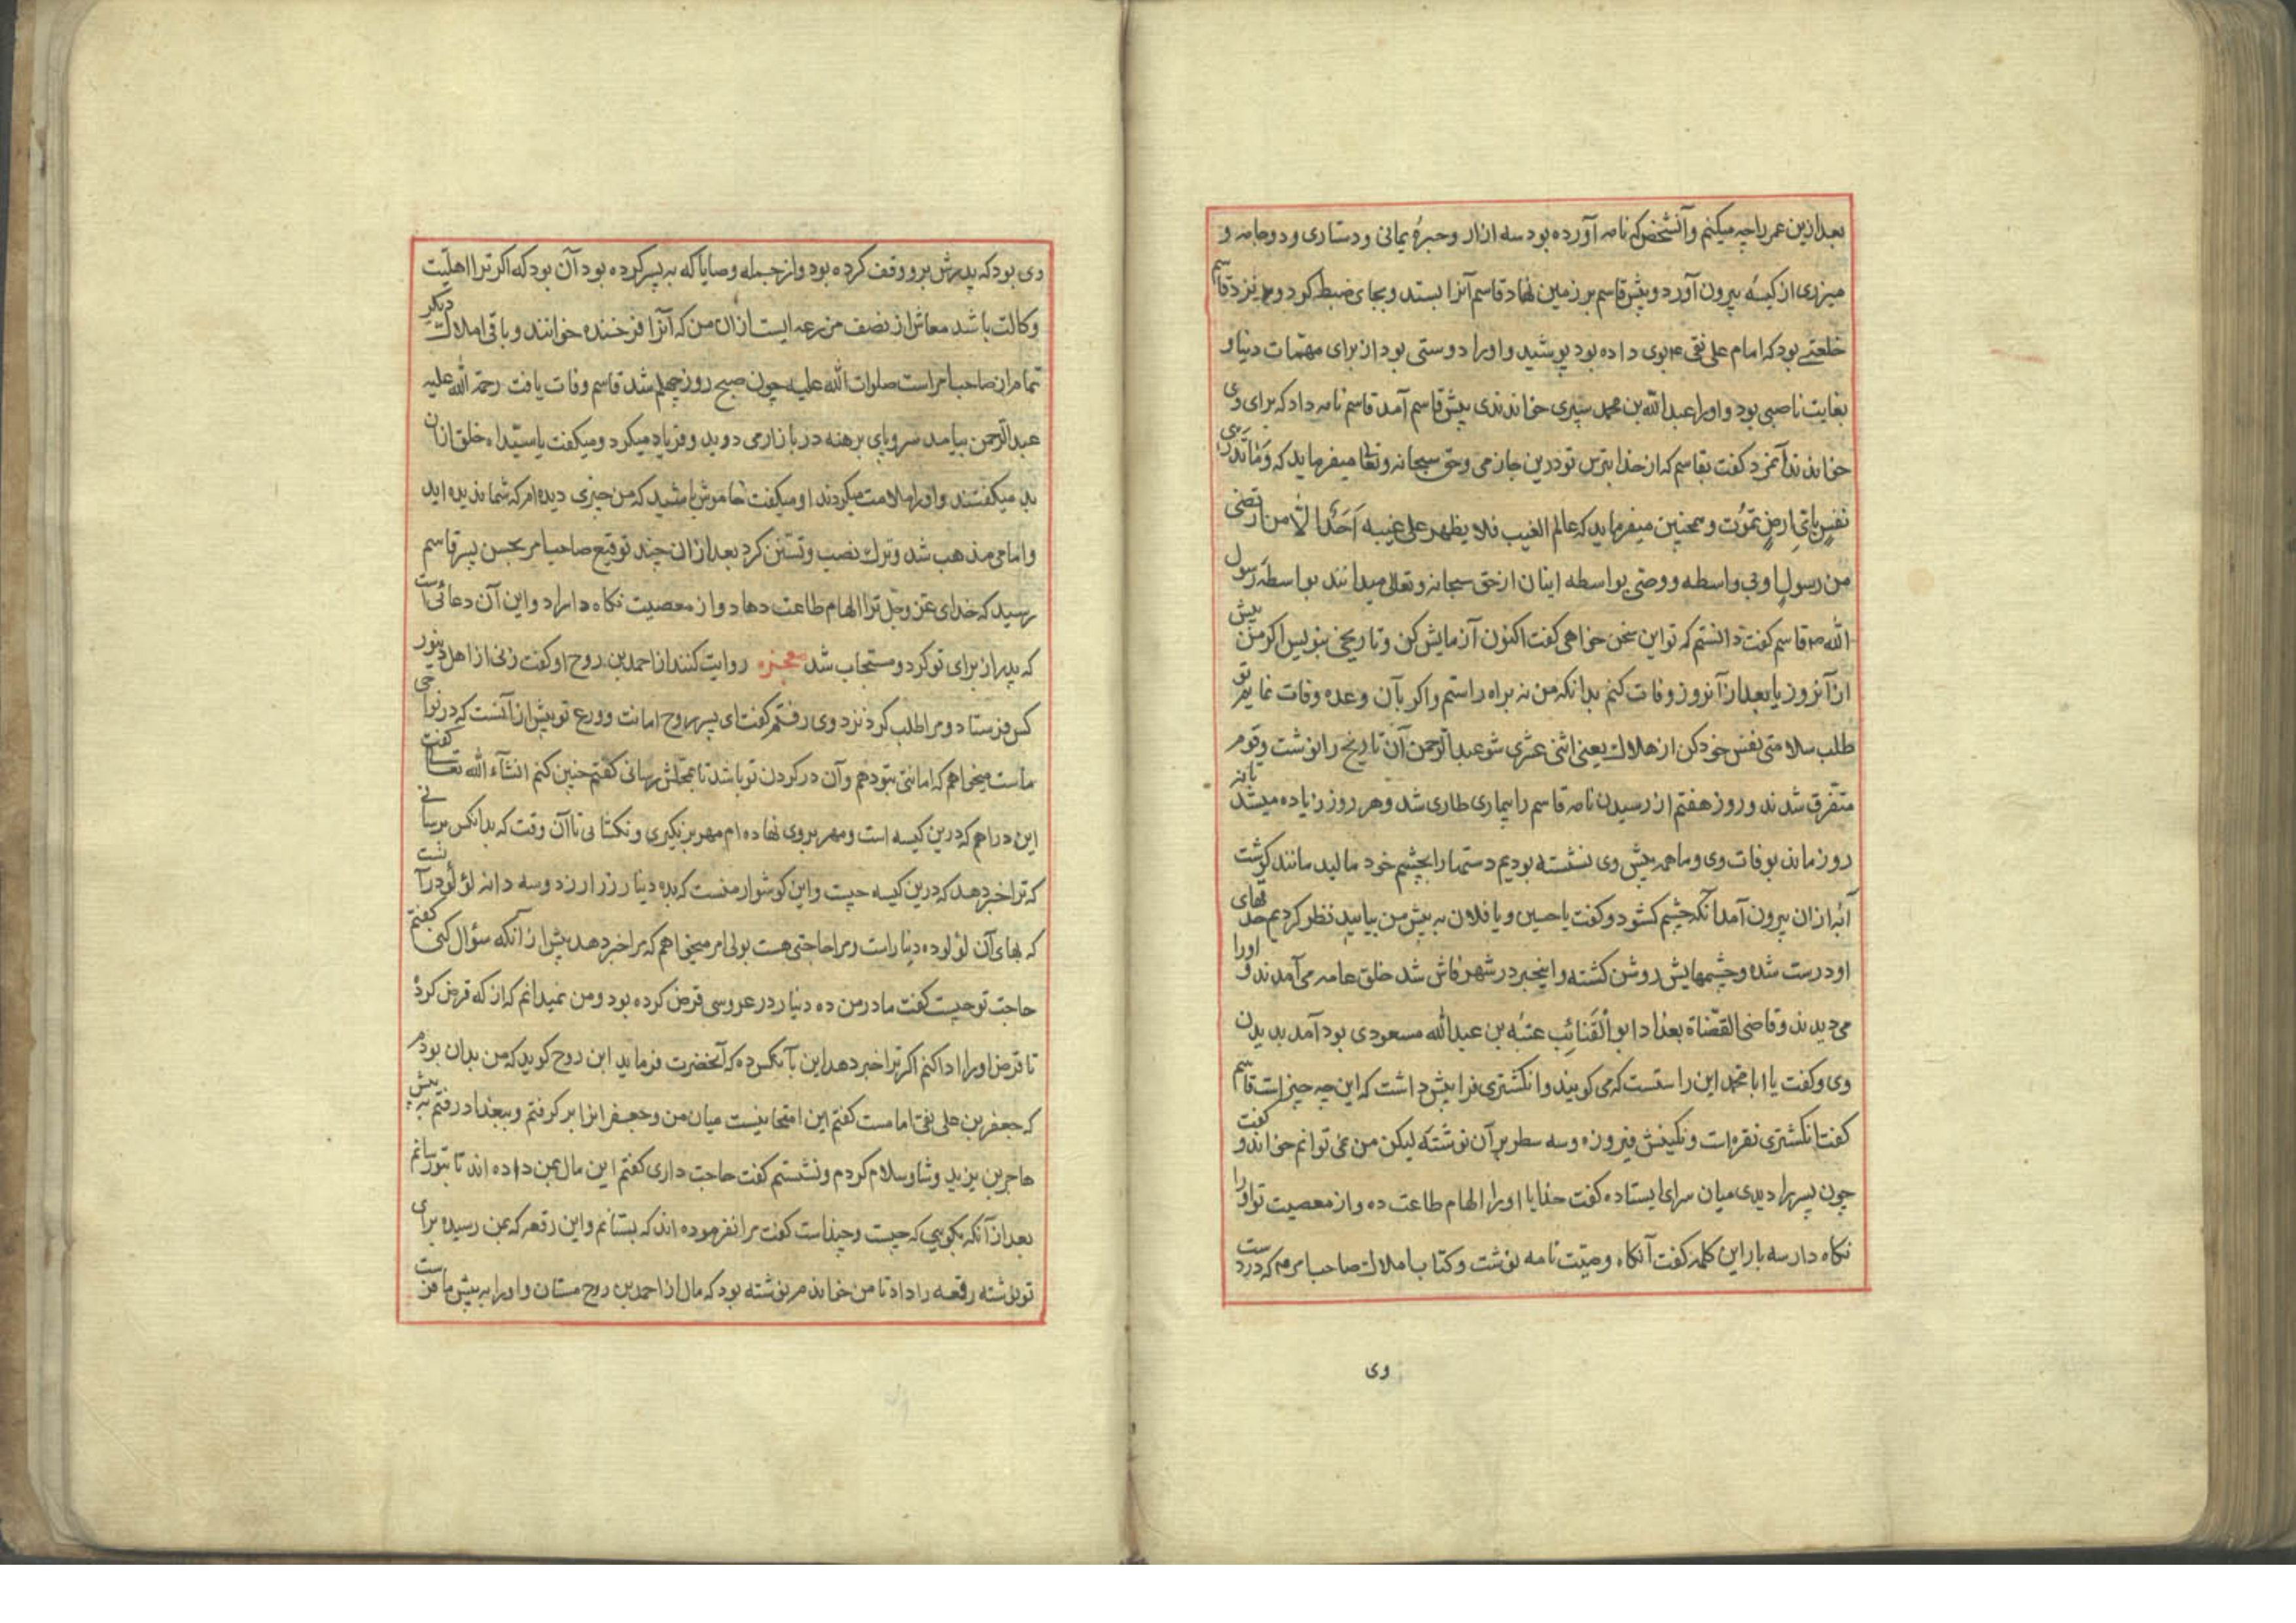 بعد ازین عمر را چه میکنم و آنشخص که نامه آورده بود سه ازار و حبرهٔ یمانی و دستاری و دو جامه و
میزری از کیسه بیرون آورد و پیش قاسم بر زمین نهاد قاسم آنرا بستد و بجای ضبط کرد و نزد قاسم
خلعتی بود که امام علی نقی ع بوی داده بود پوشید و او را دوستی بود از برای مهمّات دنیا و
بغایت ناصبی بود و او را عبدالله بن محمد سپری خواندندی پیش قاسم آمد قاسم نامه داد که برای وی
خواندند آنمرد کفت بقاسم که از خدا بترس تو درین جازمی و حق سبحانه و تعالی میفرماید که وَمَا تَدْرِی
نفسٍ بایّ ارضٍ تموُت و همچنین میفرماید که عالم الغیب فلا یظهر علی غیبه اَحَدًا الّا من ارتضی
من رسولٍ او بی واسطه و وصی بواسطه اینان از حق سبحانه و تعالی میدانند بواسطهٔ رسول
الله ص قاسم کفت دانستم که تو این سخن خواهی کفت اکنون آزمایش کن و تاریخی بنویس اکر من پیش
از آنروز یا بعد از آنروز وفات کنم بدانکه من نه براه راستم و اکر بآن وعده وفات نمایم تو
طلب سلامتی نفس خود کن از هلاک یعنی اثنی عشری شو عبدالرحمن آن تاریخ را نوشت و قوم
متفرق شدند و روز هفتم از رسیدن نامه قاسم را بیماری طاری شد و هر روز زیاده میشد
روز ماند بوفات وی و ما همه پیش وی نشسته بودیم دستها را بچشم خود مالید مانند کوشت
آبه ازان بیرون آمد آنکه چشم کشود و کفت یا حسین و یا فلان به پیش من بیایید نظر کردیم حدقهای
او درست شده و چشمهایش روشن کشته و اینخبر در شهر فاش شد خلق عامه می آمدند و او را
می دیدند و قاضی القضاة بغداد ابو القنائب عتبه بن عبدالله مسعودی بود آمد بدیدن
وی و کفت یا ابا محمد این راستست که می کویند و انکشتری فرا پیش داشت که این چه چیز است قاسم
کفت انکشتری نقره است و نکینش فیروزه و سه سطر بر آن نوشته لیکن من نمی توانم خواند و کفت
چون پسر را دیدی میان سرای ایستاده کفت خدایا او را الهام طاعت ده و از معصیت تو او را
نکاه دار سه بار این کلمه کفت آنکاه وصیّت نامه نوشت و کتاب املاک صاحب امر ع که در دست
وی
وی بود که پدرش برو وقف کرده بود و از جمله وصایا که به پسر کرده بود آن بود که اکر ترا اهلیّت
وکالت باشد معاش از نصف مزرعه ایست ازان من که آنرا فرخنده خوانند و باقی املاک دیکر
تمام ازان صاحب امر است صلوات الله علیه چون صبح روز چهلم شد قاسم وفات یافت رحمة الله علیه
عبدالرحمن بیامد سر و پای برهنه در بازار می دوید و فریاد میکرد و میکفت یا سیّداه خلق ازان
بد میکفتند و او را ملامت میکردند او میکفت خاموش باشید که من چیزی دیده ام که شما ندیده اید
و امامی مذهب شد و ترک نصب و تسنّن کرد بعد ازان چند توقیع صاحب امر بحسن پسر قاسم
رسید که خدای عزّ و جلّ ترا الهام طاعت دهاد و از معصیت نکاه داراد و این آن دعائیست
که پدر از برای تو کرد و مستجاب شد معجزه روایت کنند از احمد بن روح او کفت زنی از اهل دینور
کس فرستاد و مرا طلب کرد نزد وی رفتم کفت ای پسر روح امانت و ورع تو بیش از آنست که در نواحی
ماست میخواهم که امانتی بتو دهم و آن در کردن تو باشد تا بمحلّش رسانی کفتم چنین کنم انشاء الله تعالی کفت
این دراهم که درین کیسه است و مهر بروی نهاده ام مهر برنکیری و نکشائی تا آن وقت که بدانکس برسانی
که ترا خبر دهد که درین کیسه چیست و این کوشوار منست که بده دینار زر ارزد و سه دانه لؤلؤ در آنست
که بهای آن لؤلؤ ده دینار است و مرا حاجتی هست بولی امر میخواهم که مرا خبر دهد پیش از آنکه سؤال کنی کفتم
حاجت تو چیست کفت مادر من ده دینار در عروسی قرض کرده بود و من نمیدانم که از که قرض کرد
تا قرض او را ادا کنم اکر ترا خبر دهد این بآنکس ده که آنحضرت فرماید ابن روح کوید که من بدان بودم
که جعفر بن علی نقی امامست کفتم این امتحانیست میان من و جعفر انرا بر کرفتم و ببغداد رفتم به پیش
حاجر بن یزید وشا و سلام کردم و نشستم کفت حاجت داری کفتم این مال بمن داده اند تا بتو رسانم
بعد از آنکه بکویی که چیست و چند است کفت مرا نفرموده اند که بستانم و این رقعه که بمن رسیده برای
تو نوشته رقعه را داد تا من خواندم نوشته بود که مال از احمد بن روح مستان و او را به پیش ما فرست